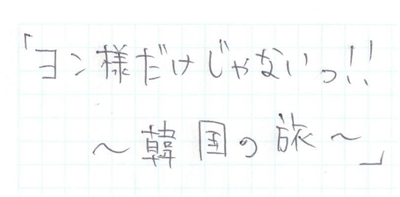 「ヨン様だけじゃないっ!!
～韓国の旅～」